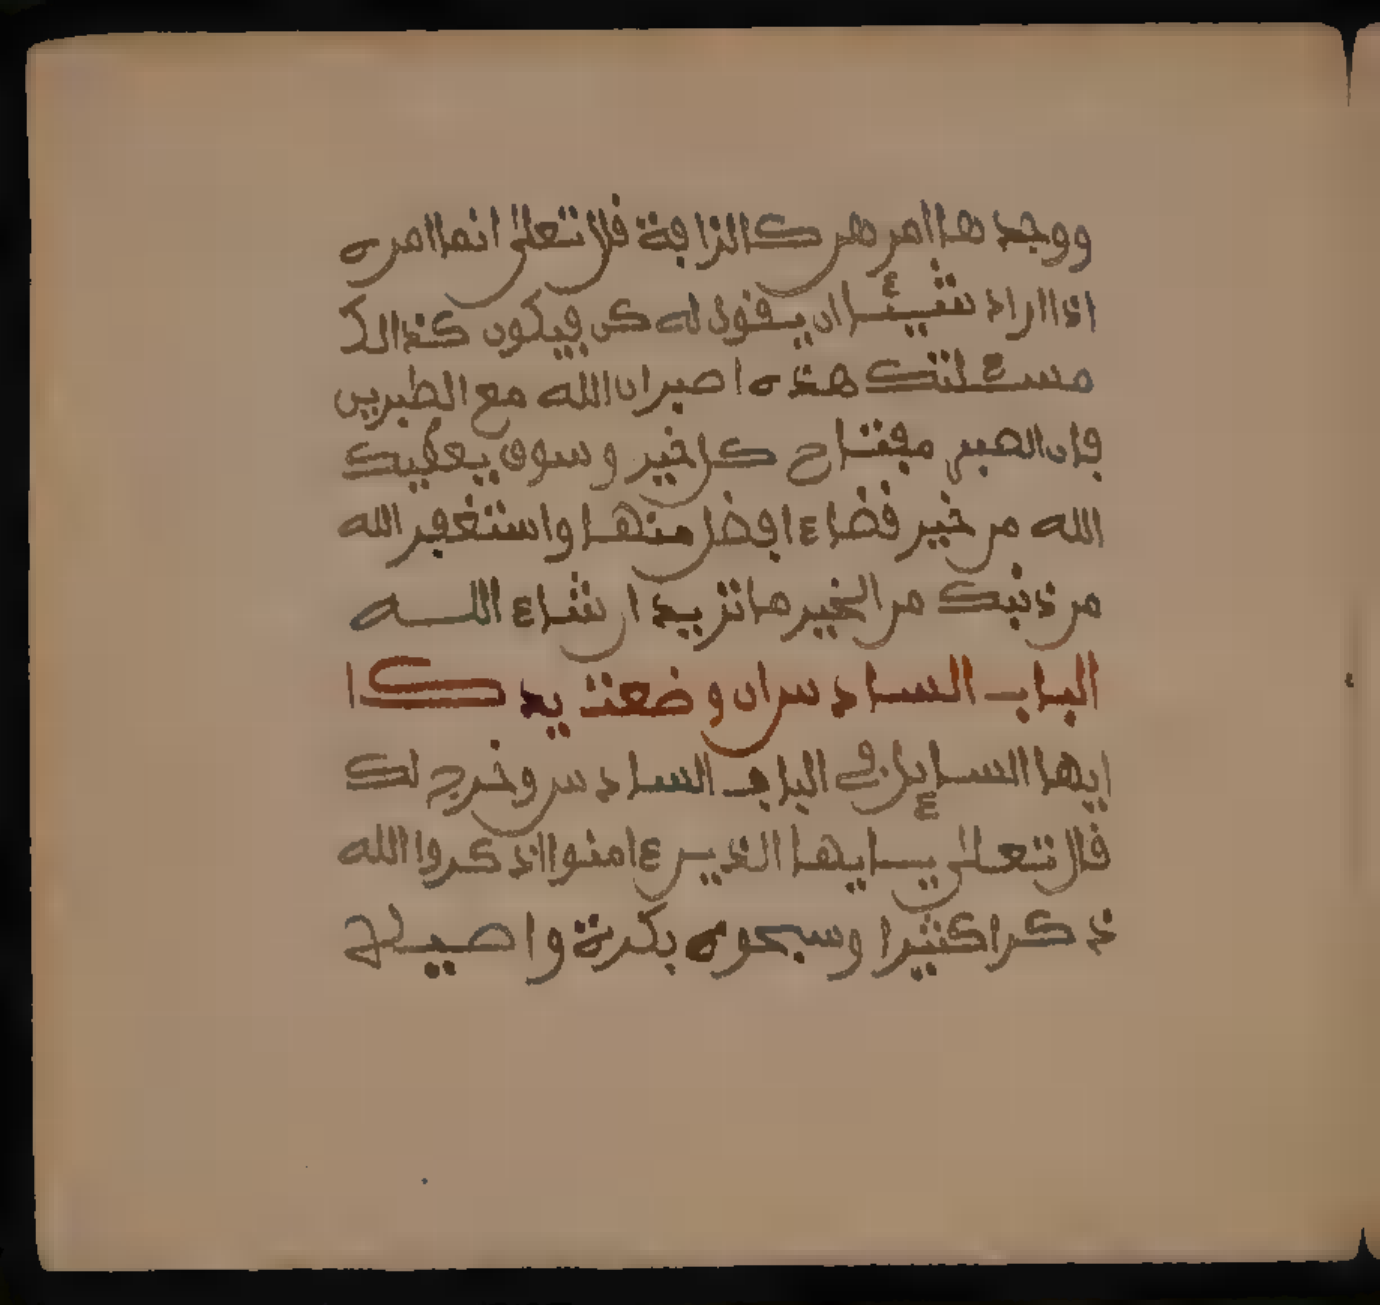 ووجدها امر هركالنرافة قال تعلى انما امره
اذا اراد شيئا ان يقول له كن فيكون كذالك
مسئلتك هذه اصبر ان الله مع الصبرين
فان الصبر مفتاح كل خير وسوف يعطيك
الله من خير قضاء افضل منها واستغفر الله
من ذنبك من الخير ما تريد ان شاء اللـــه
الباب السادس ان وضعت يدك ا
ايها السايل في الباب السادس وخرج لك
قال تعالى يايها الذين ءامنوا اذكروا الله
ذكرا كثيرا وسبحوه بكرة واصيلا